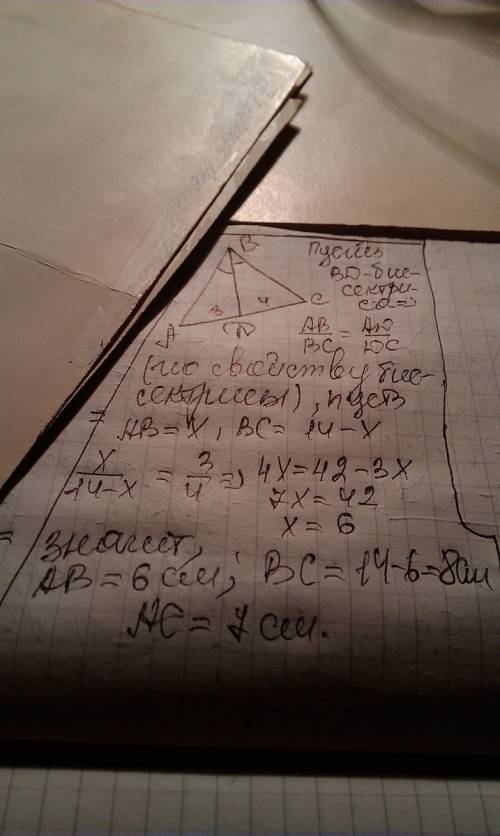 B
Пусть
BD-бис-
сектри-
са=>
A
3
4
C
D
AB/BC = AD/DC
(по свойству бис-
сектрисы), пусть
AB=X, BC=14-X
X/14-X = 3/4 =>, 4X=42-3X
7X=42
X=6
= значит,
AB=6см; BC=14-6=8см
AC=7см.